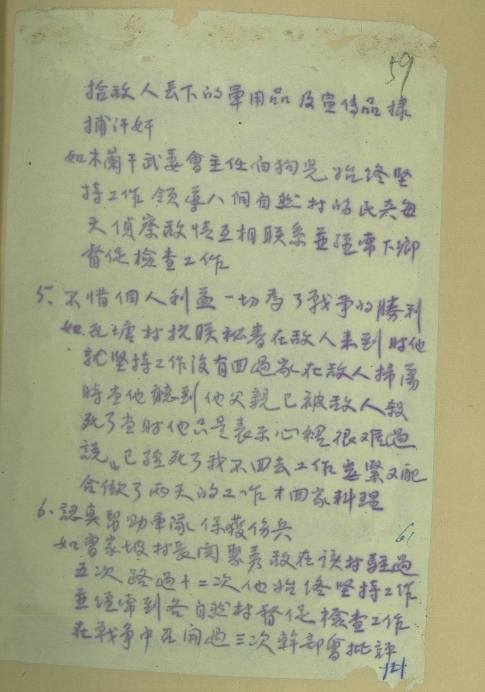 59
拾敵人丢下的軍用品及宣傳品
捕汗奸
如木蘭干武委會主任白狗児始終堅
持工作領導八個自然村的民兵每
天偵察敵情互相联系並經常下鄉
督促檢查工作
5. 不惜個人利益一切為了戰争的勝利
如瓦塘村抗联秘書在敵人来到时他
就坚持工作没有回過家在敵人掃蕩
時當他聽到他父親已被敵人殺
死了當时他只是表示心裡很难過
說已經死了我不回去工作要緊又配
合做了兩天的工作才回家料理
6. 認真幫助軍隊保護伤兵
如曹家坡村長閆聚秀敵在該村駐過
五次路過十二次他始终坚持工作
並經常到各自然村督促檢查工作
在戰争中召開過三次幹部會批評
61
121